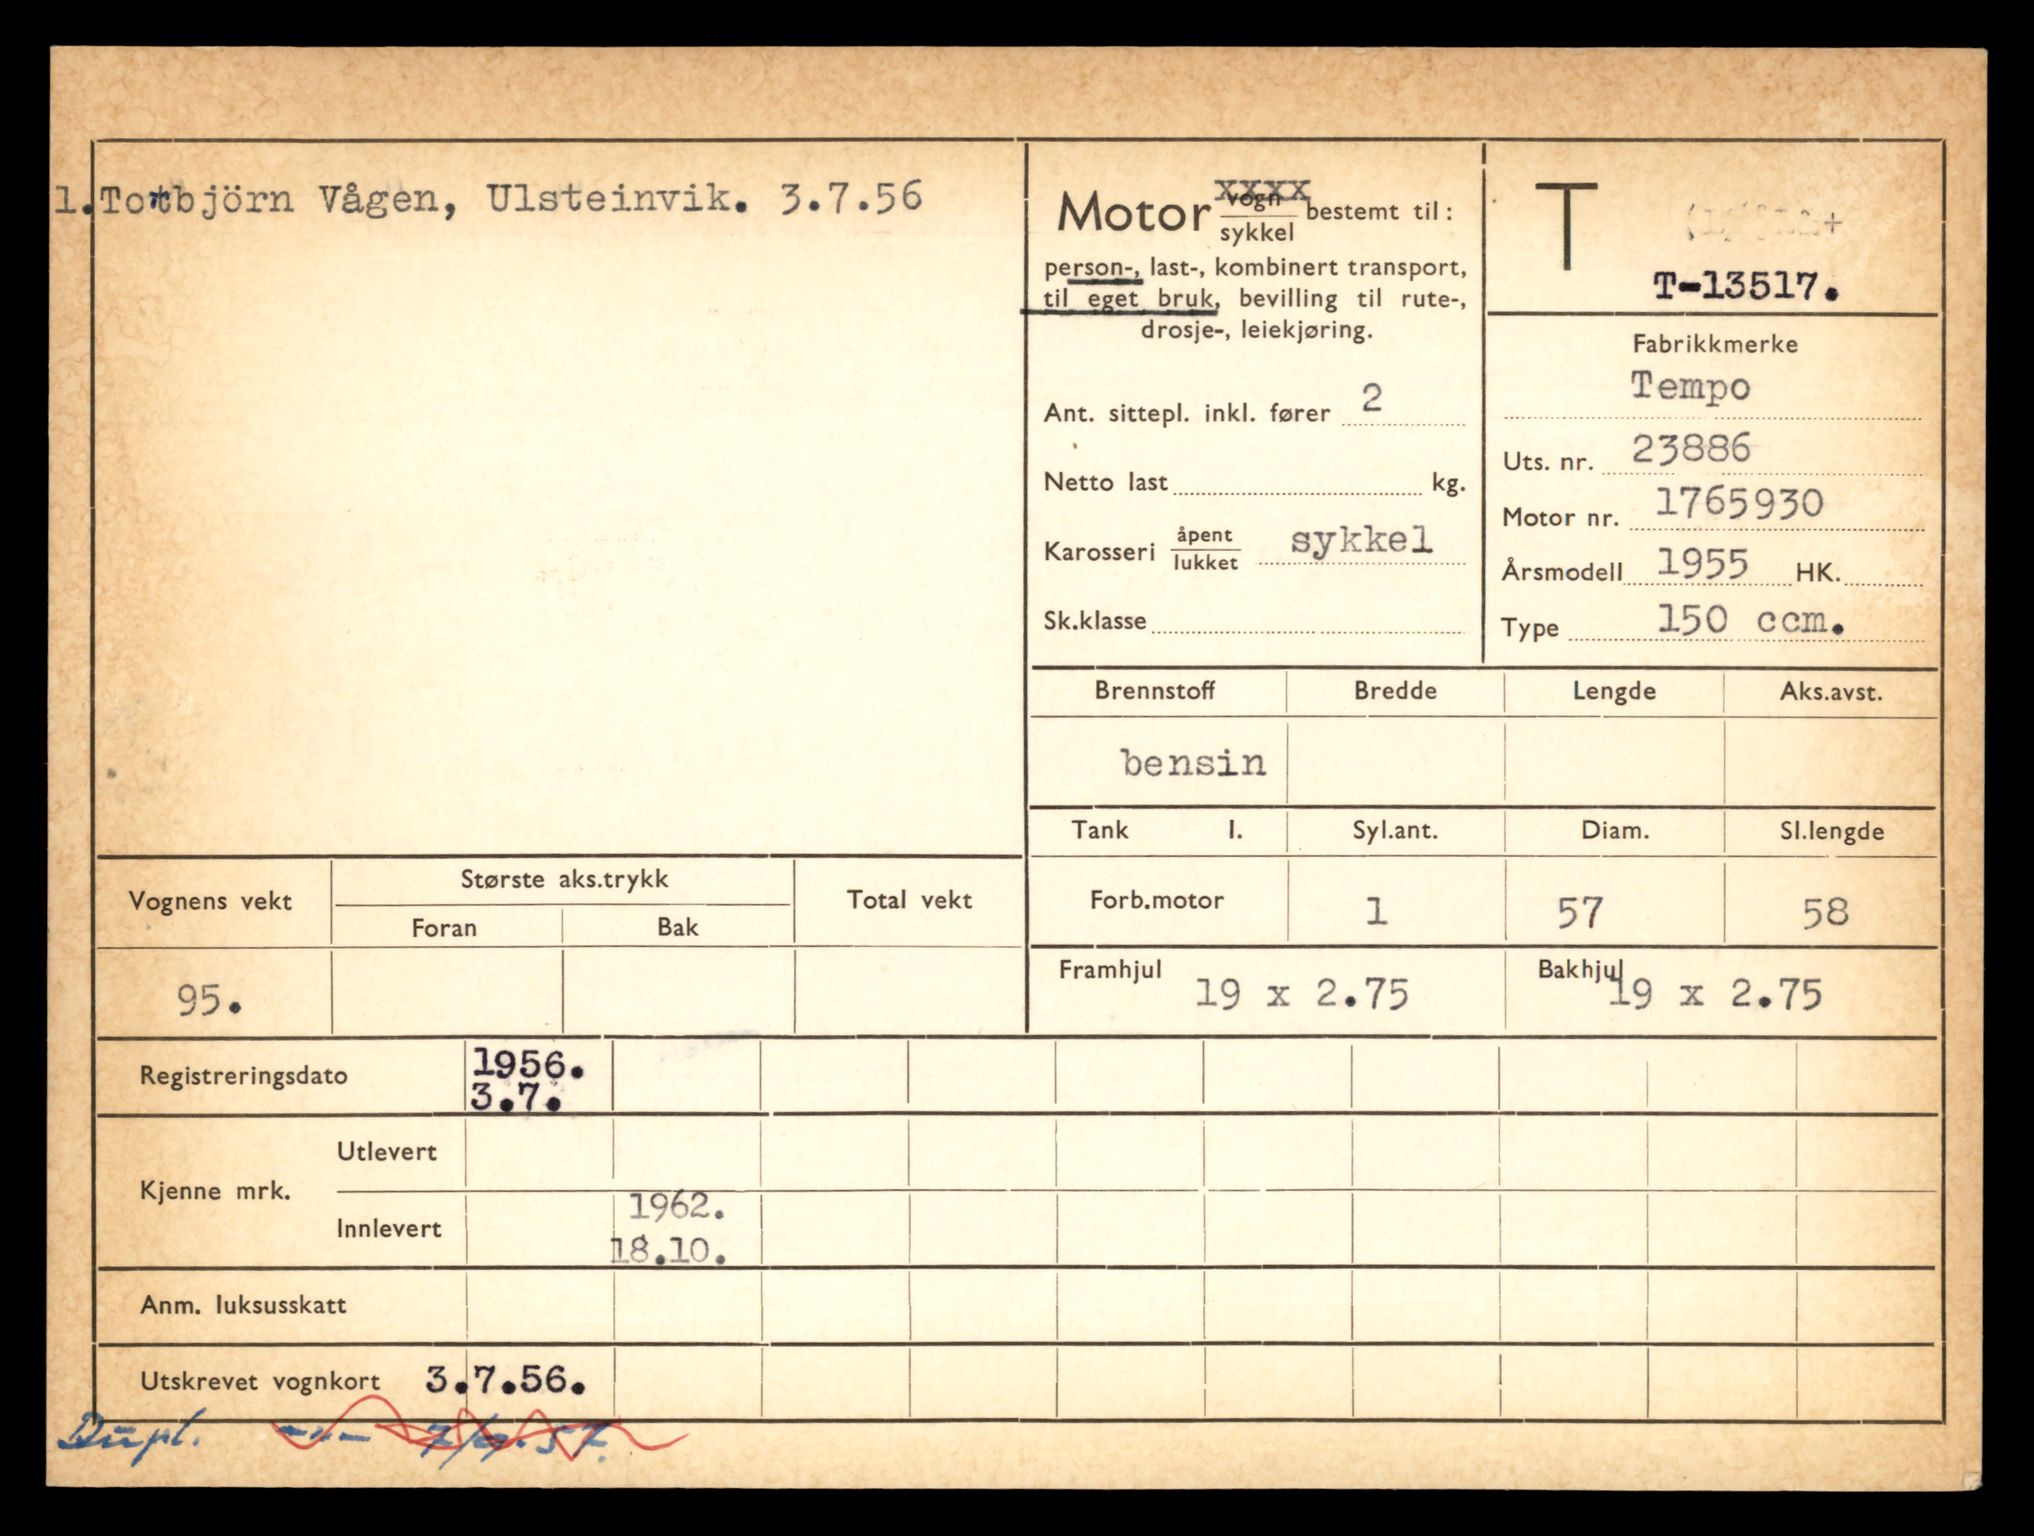 1. Torbjörn Vågen, Ulsteinvik. 3.7.56
Motor vogn xxxx / sykkel bestemt til:
person-, last-, kombinert transport,
til eget bruk, bevilling til rute-,
drosje-, leiekjøring.
Ant. sittepl. inkl. fører 2
Netto last kg.
Karosseri åpent / lukket sykkel
Sk.klasse
T
T-13517.
Fabrikkmerke
Tempo
Uts. nr. 23886
Motor nr. 1765930
Årsmodell 1955 HK.
Type 150 ccm.
Brennstoff Bredde Lengde Aks.avst.
bensin
Tank l. Syl.ant. Diam. Sl.lengde
Forb.motor 1 57 58
Framhjul 19 x 2.75 Bakhjul 19 x 2.75
Vognens vekt Største aks.trykk Total vekt
Foran Bak
95.
Registreringsdato 1956.
3.7.
Kjenne mrk.
Utlevert
Innlevert 1962.
18.10.
Anm. luksusskatt
Utskrevet vognkort 3.7.56.
Dupl. -"-